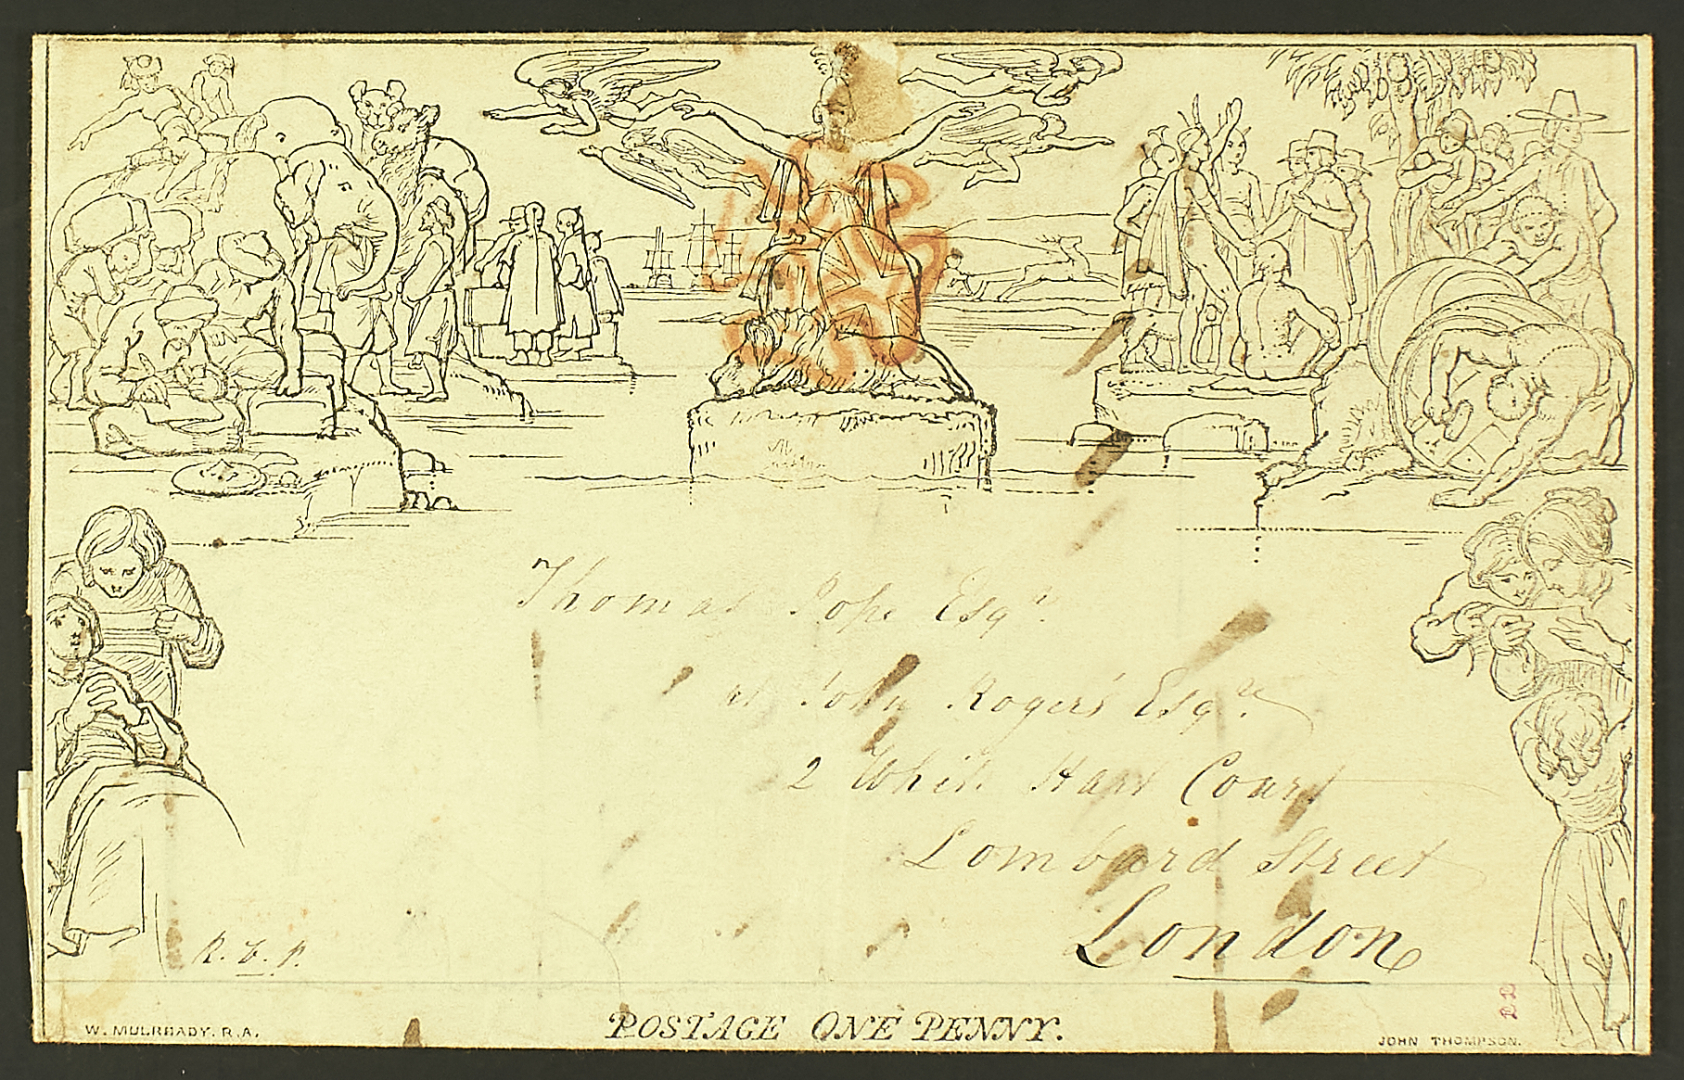 Thomas Pope Esqr.
at John Rogers Esqre.
2 White Hart Court
Lombard Street
London
POSTAGE ONE PENNY.
W. MULREADY. R.A.
JOHN THOMPSON.